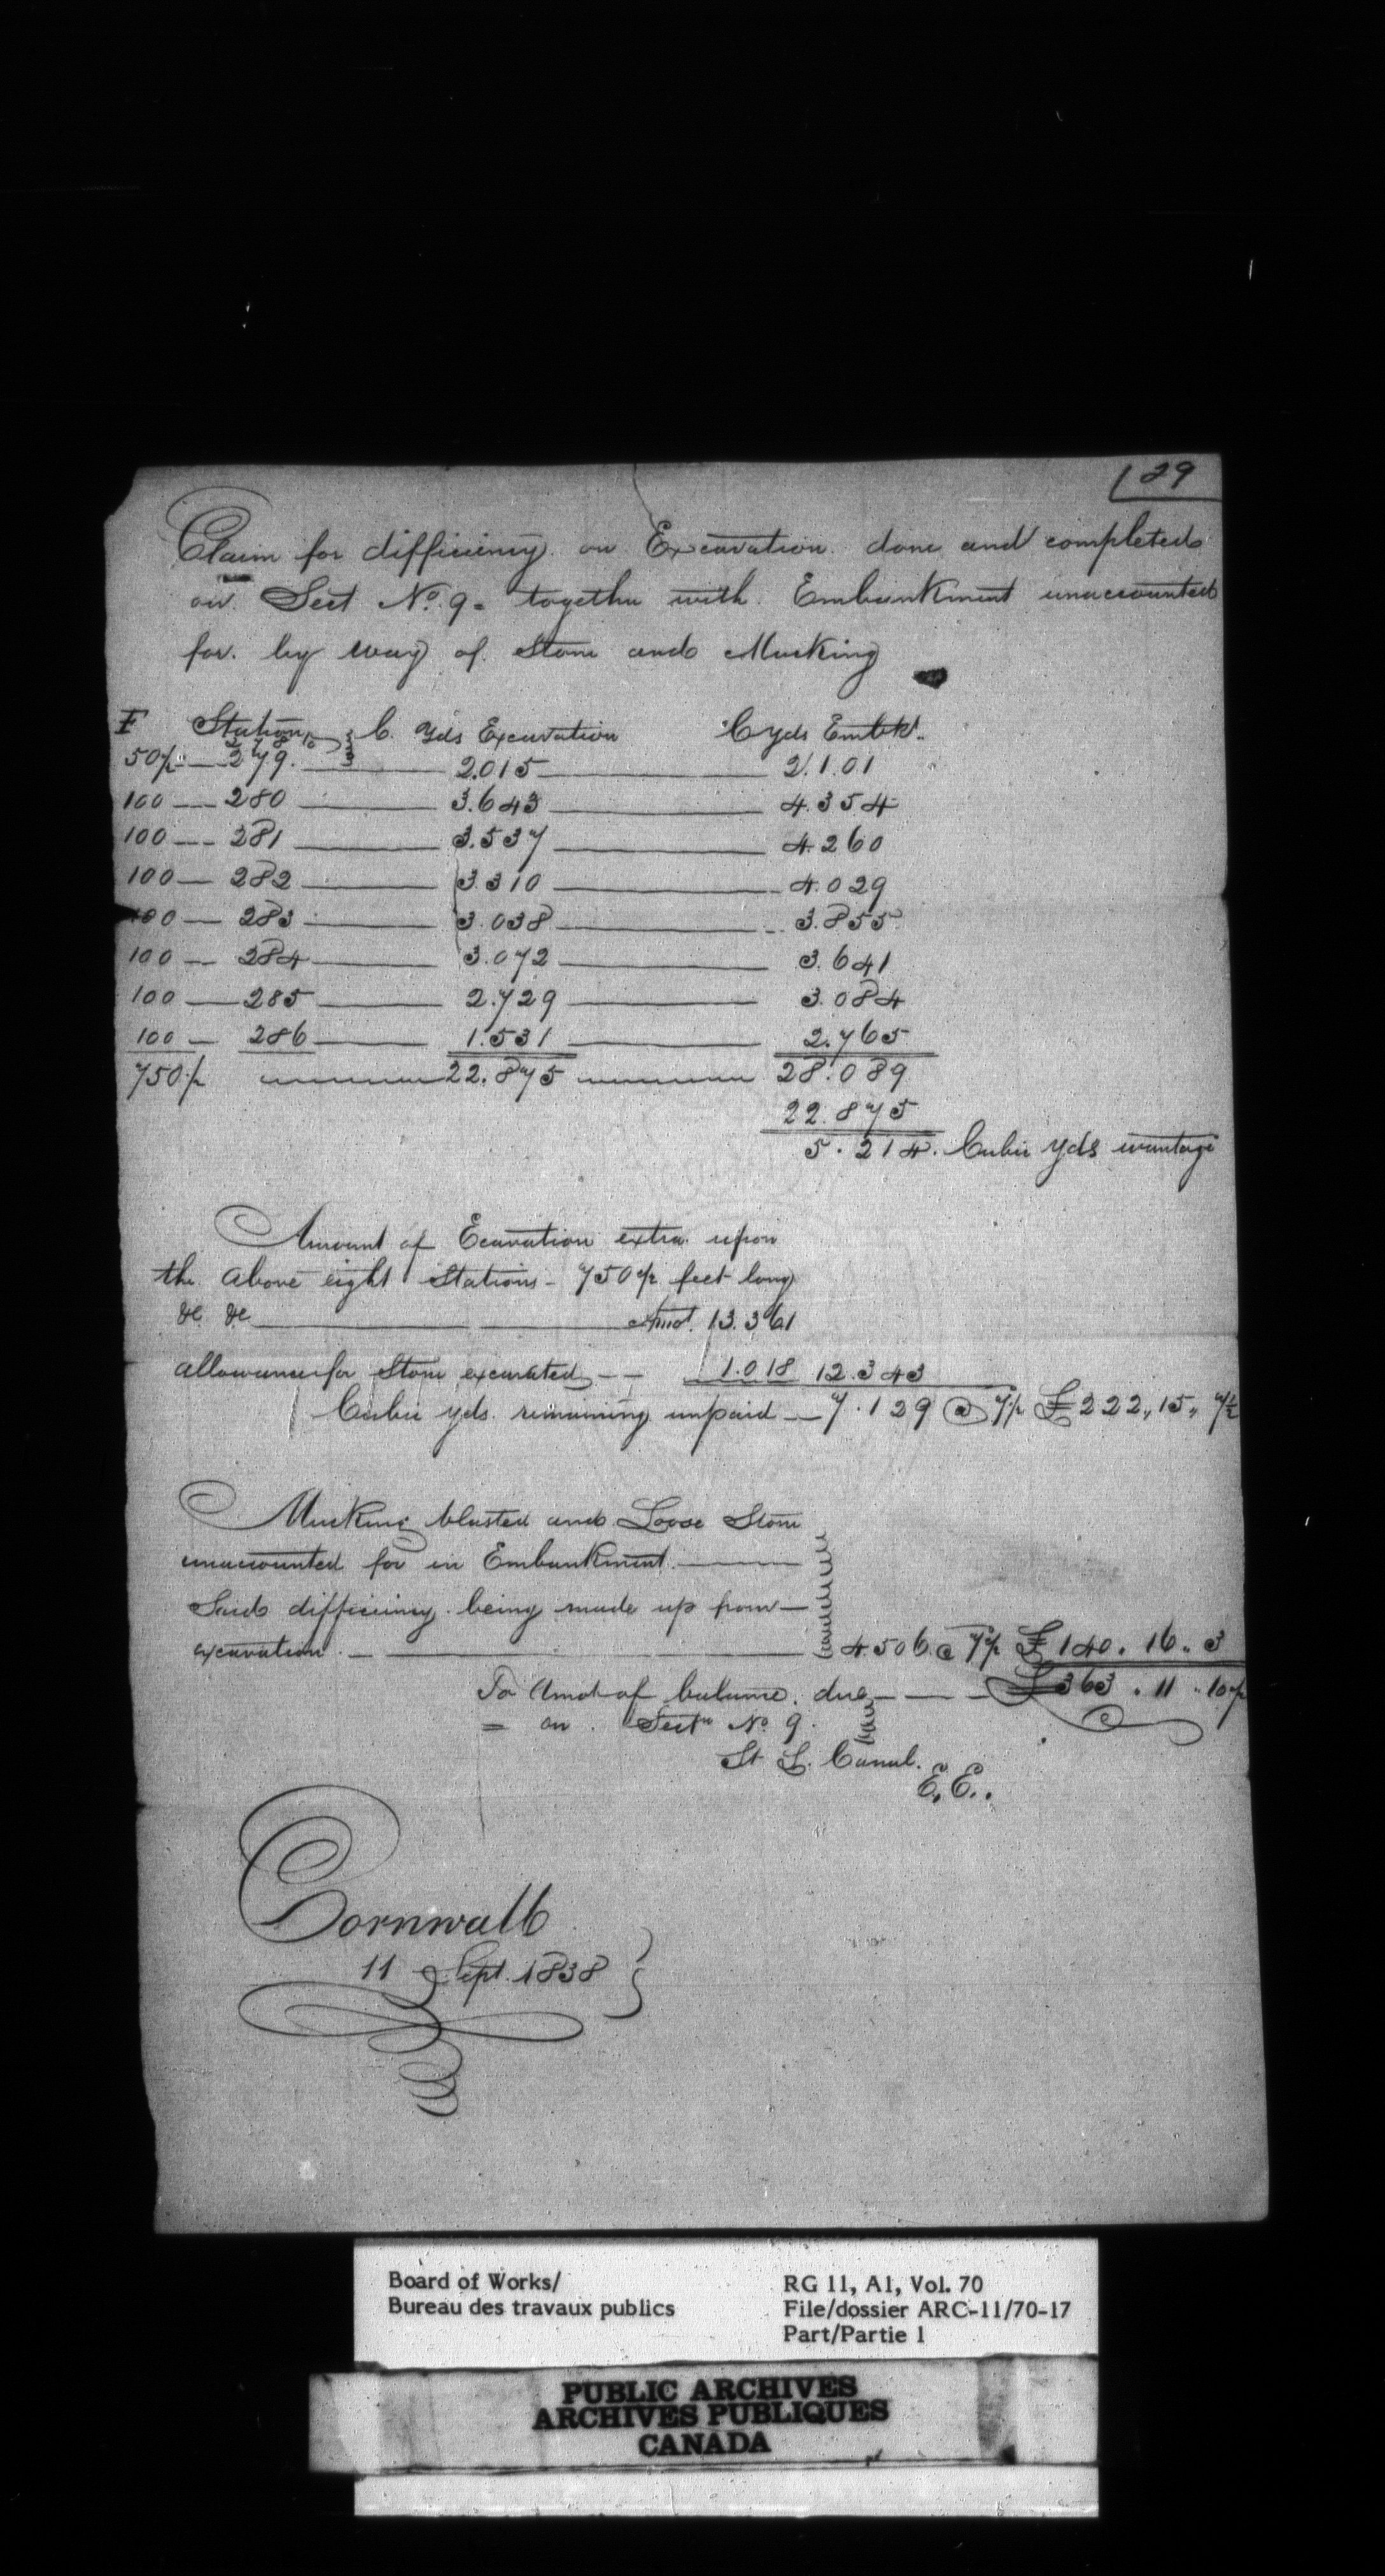 129
Claim for difficiency on Excavation done and completed
on Sect No. 9 = together with Embankment unaccounted
for by way of Stone and Mucking
F Station C. Yds Excavation C yds Embkt.
278 to
50f — 279. — 2.015 — 2.101
100 — 280 — 3.643 — 4.354
100 — 281 — 3.537 — 4.260
100 — 282 — 3.310 — 4.029
100 — 283 — 3.038 — 3.855
100 — 284 — 3.072 — 3.641
100 — 285 — 2.729 — 3.084
100 — 286 — 1.531 — 2.765
750f — 22.875 — 28.089
22.875
5.214. Cubic Yds wantage
Amount of Ecavation extra upon
the above eight Stations - 750f feet long
&c &c — Amot. 13.361
allowance for Stone excavated — 1.018 12.343
Cubic yds. remaining unpaid — 7.129 @ 7½ £222,, 15,, 7½
Mucking blasted and Loose Stone
unaccounted for in Embankment. —
Said difficiency being made up from —
excavation. — 4.506 @ 7½ £140. 16.. 3
To Amot of balance due — £363. 11.. 10½
= on Sectn No. 9.
St L. Canal.
E.E..
Cornwall
11 Sept. 1838
Board of Works/
Bureau des travaux publics
RG 11, A1, Vol. 70
File/dossier ARC-11/70-17
Part/Partie 1
PUBLIC ARCHIVES
ARCHIVES PUBLIQUES
CANADA